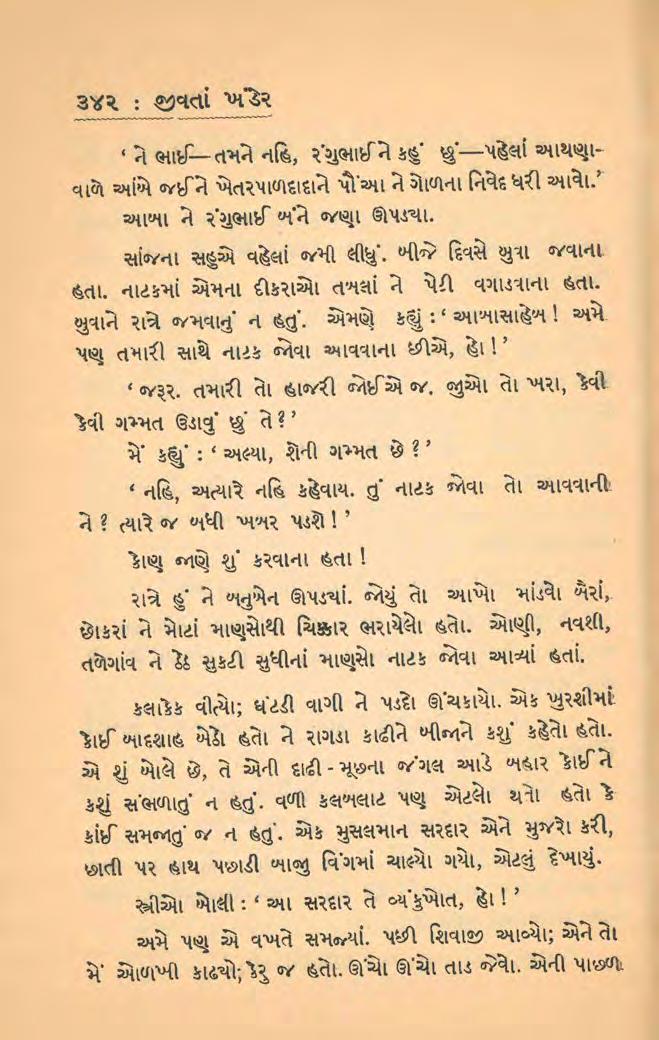 ૩૪૨ : જીવતાં ખંડેર
‘ ને ભાઈ—તમને નહિ, રંગુભાઈને કહું છું—પહેલાં આથણા-
વાળે આંબે જઈને ખેતરપાળદાદાને પૌંઆ ને ગોળના નિવેદ ધરી આવો.’
આબા ને રંગુભાઈ બંને જણા ઊપડ્યા.
સાંજના સહુએ વહેલાં જમી લીધું. બીજે દિવસે બુવા જવાના
હતા. નાટકમાં એમના દીકરાઓ તબલાં ને પેટી વગાડવાના હતા.
બુવાને રાત્રે જમવાનું ન હતું. એમણે કહ્યું : ‘ આબાસાહેબ ! અમે
પણ તમારી સાથે નાટક જોવા આવવાના છીએ, હો ! ’
‘ જરૂર. તમારી તો હાજરી જોઈએ જ. જુઓ તો ખરા, કેવી
કેવી ગમ્મત ઉડાવું છું તે ? ’
મેં કહ્યું : ‘ અલ્યા, શેની ગમ્મત છે ? ’
‘ નહિ, અત્યારે નહિ કહેવાય. તું નાટક જોવા તો આવવાની
ને ? ત્યારે જ બધી ખબર પડશે ! ’
કોણ જાણે શું કરવાના હતા !
રાત્રે હું ને બનુબેન ઊપડ્યાં. જોયું તો આખો માંડવો બૈરાં,
છોકરાં ને મોટાં માણસોથી ચિક્કાર ભરાયેલો હતો. ઓણી, નવશી,
તળેગાંવ ને ઠેઠ સુકટી સુધીનાં માણસો નાટક જોવા આવ્યાં હતાં.
કલાકેક વીત્યો; ઘંટડી વાગી ને પડદો ઊંચકાયો. એક ખુરશીમાં
કોઈ બાદશાહ બેઠો હતો ને રાગડા કાઢીને બીજાને કશું કહેતો હતો.
એ શું બોલે છે, તે એની દાઢી - મૂછના જંગલ આડે બહાર કોઈને
કશું સંભળાતું ન હતું. વળી કલબલાટ પણ એટલો થતો હતો કે
કાંઈ સમજાતું જ ન હતું. એક મુસલમાન સરદાર એને મુજરો કરી,
છાતી પર હાથ પછાડી બાજુ વિંગમાં ચાલ્યો ગયો, એટલું દેખાયું.
સ્ત્રીઓ બોલી : ‘ આ સરદાર તે વ્યંકુખોત, હો ! ’
અમે પણ એ વખતે સમજ્યાં. પછી શિવાજી આવ્યો; એને તો
મેં ઓળખી કાઢ્યો; કેરુ જ હતો. ઊંચો ઊંચો તાડ જેવો. એની પાછળ